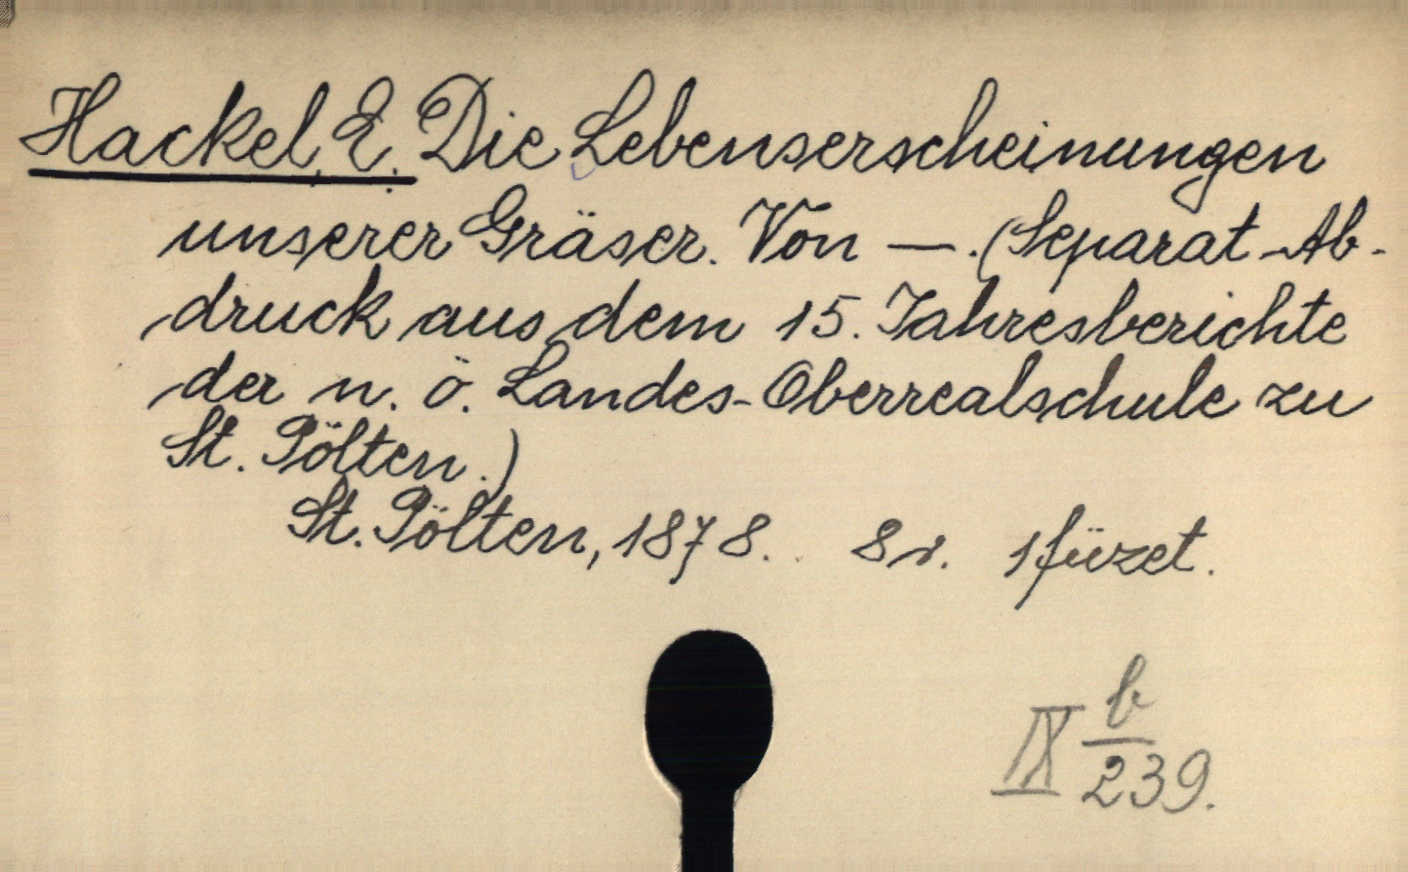 Hackel, E. Die Lebenserscheinungen
unserer Gräser. Von —. (Separat-Ab-
druck aus dem 15. Jahresberichte
der n. ö. Landes-Oberrealschule zu
St. Pölten.)
St. Pölten, 1878. 8r. 1 füzet.
IX b/239.